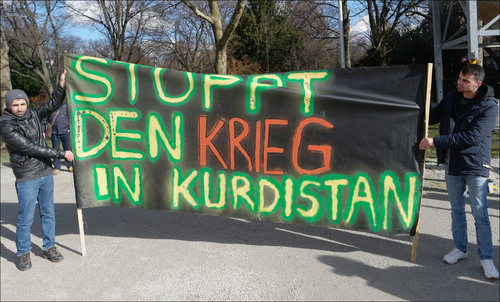 STOPPT
DEN KRIEG
IN KURDISTAN